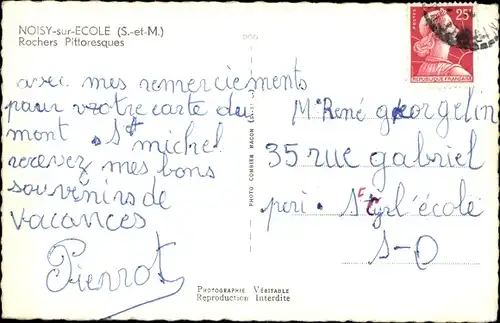 NOISY-sur-ECOLE (S.-et-M.)
Rochers Pittoresques
avec mes remerciements
pour votre carte du
mont St michel
recevez mes bons
souvenirs de
vacances
Pierrot
PHOTO COMBIER MACON
PHOTOGRAPHIE VÉRITABLE
Reproduction Interdite
POSTES 25F
REPUBLIQUE FRANÇAISE
Mr René georgelin
35 rue gabriel
peri. St Cyr l'école
S-O